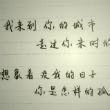 我来到 你的城市
走过你来时的
想象着 没我的日子
你是怎样的孤